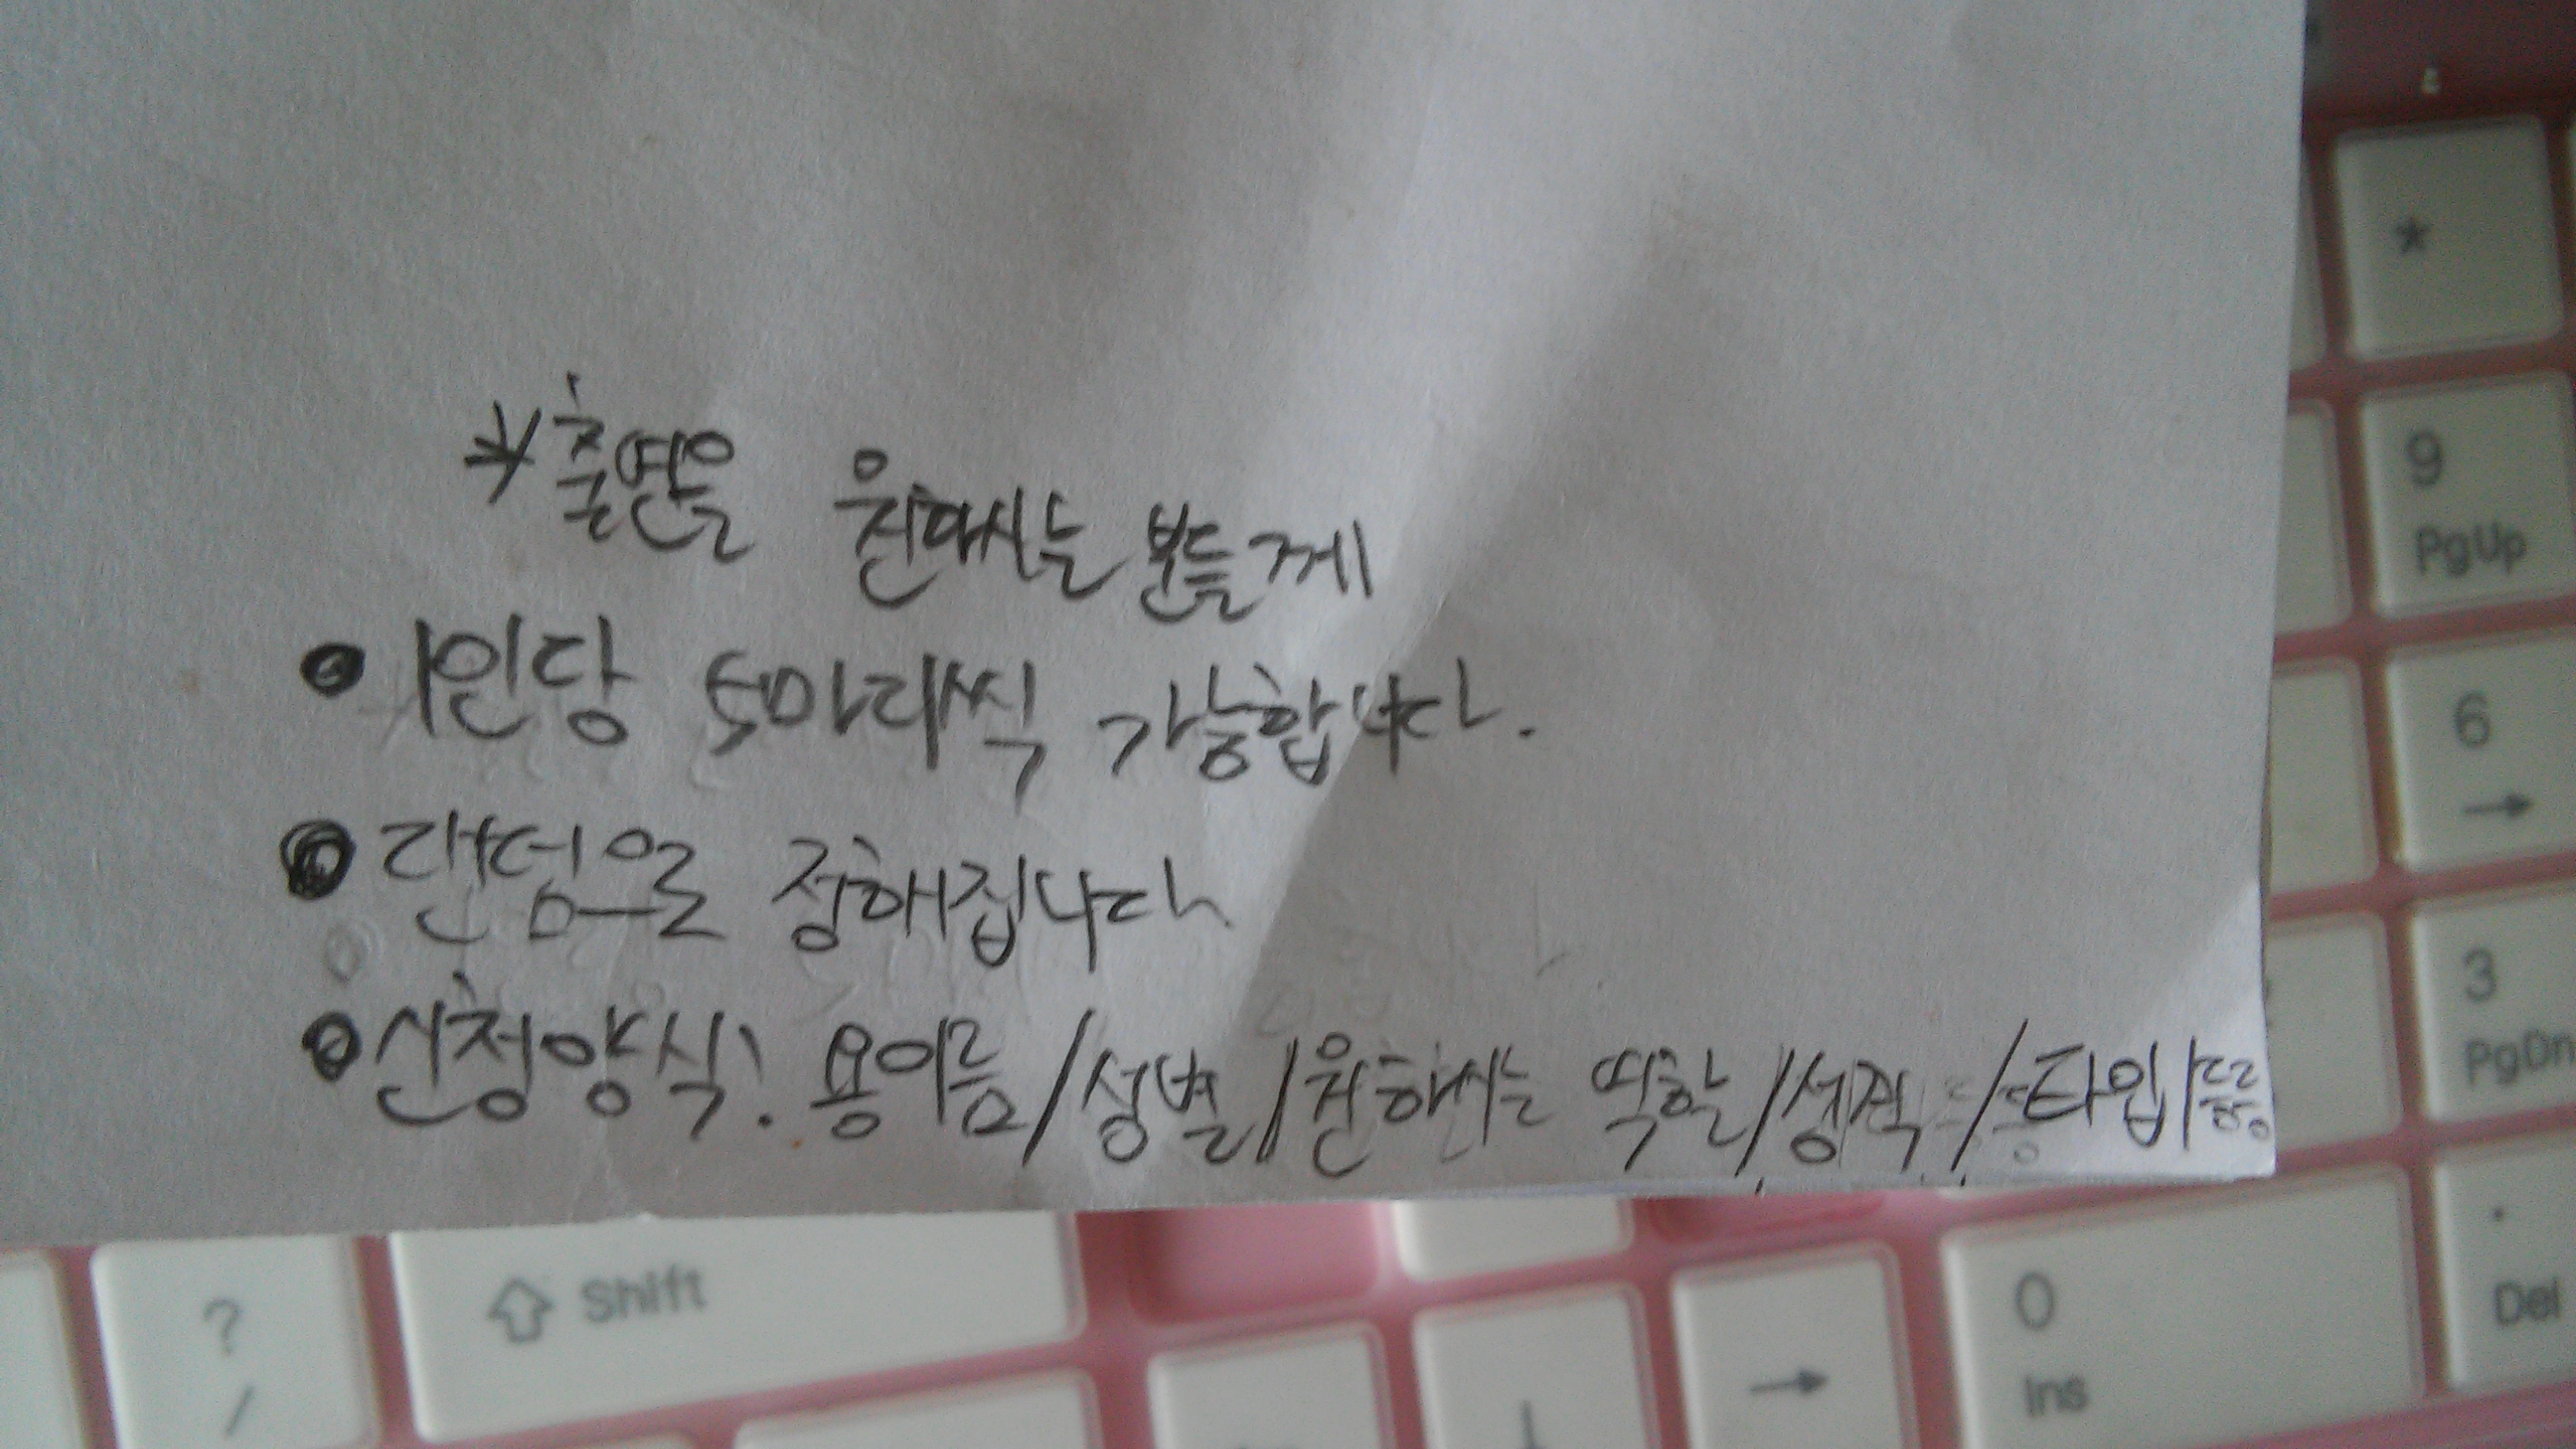 *출연을 원하시는 분들께
• 1인당 5마리씩 가능합니다.
• 랜덤으로 정해집니다
• 신청양식: 용이름/성별/원하시는 역할/성격/타입/등
*
9
PgUp
6
→
3
PgDn
?
/
⇧ Shift
0
Ins
.
Del
→
↓